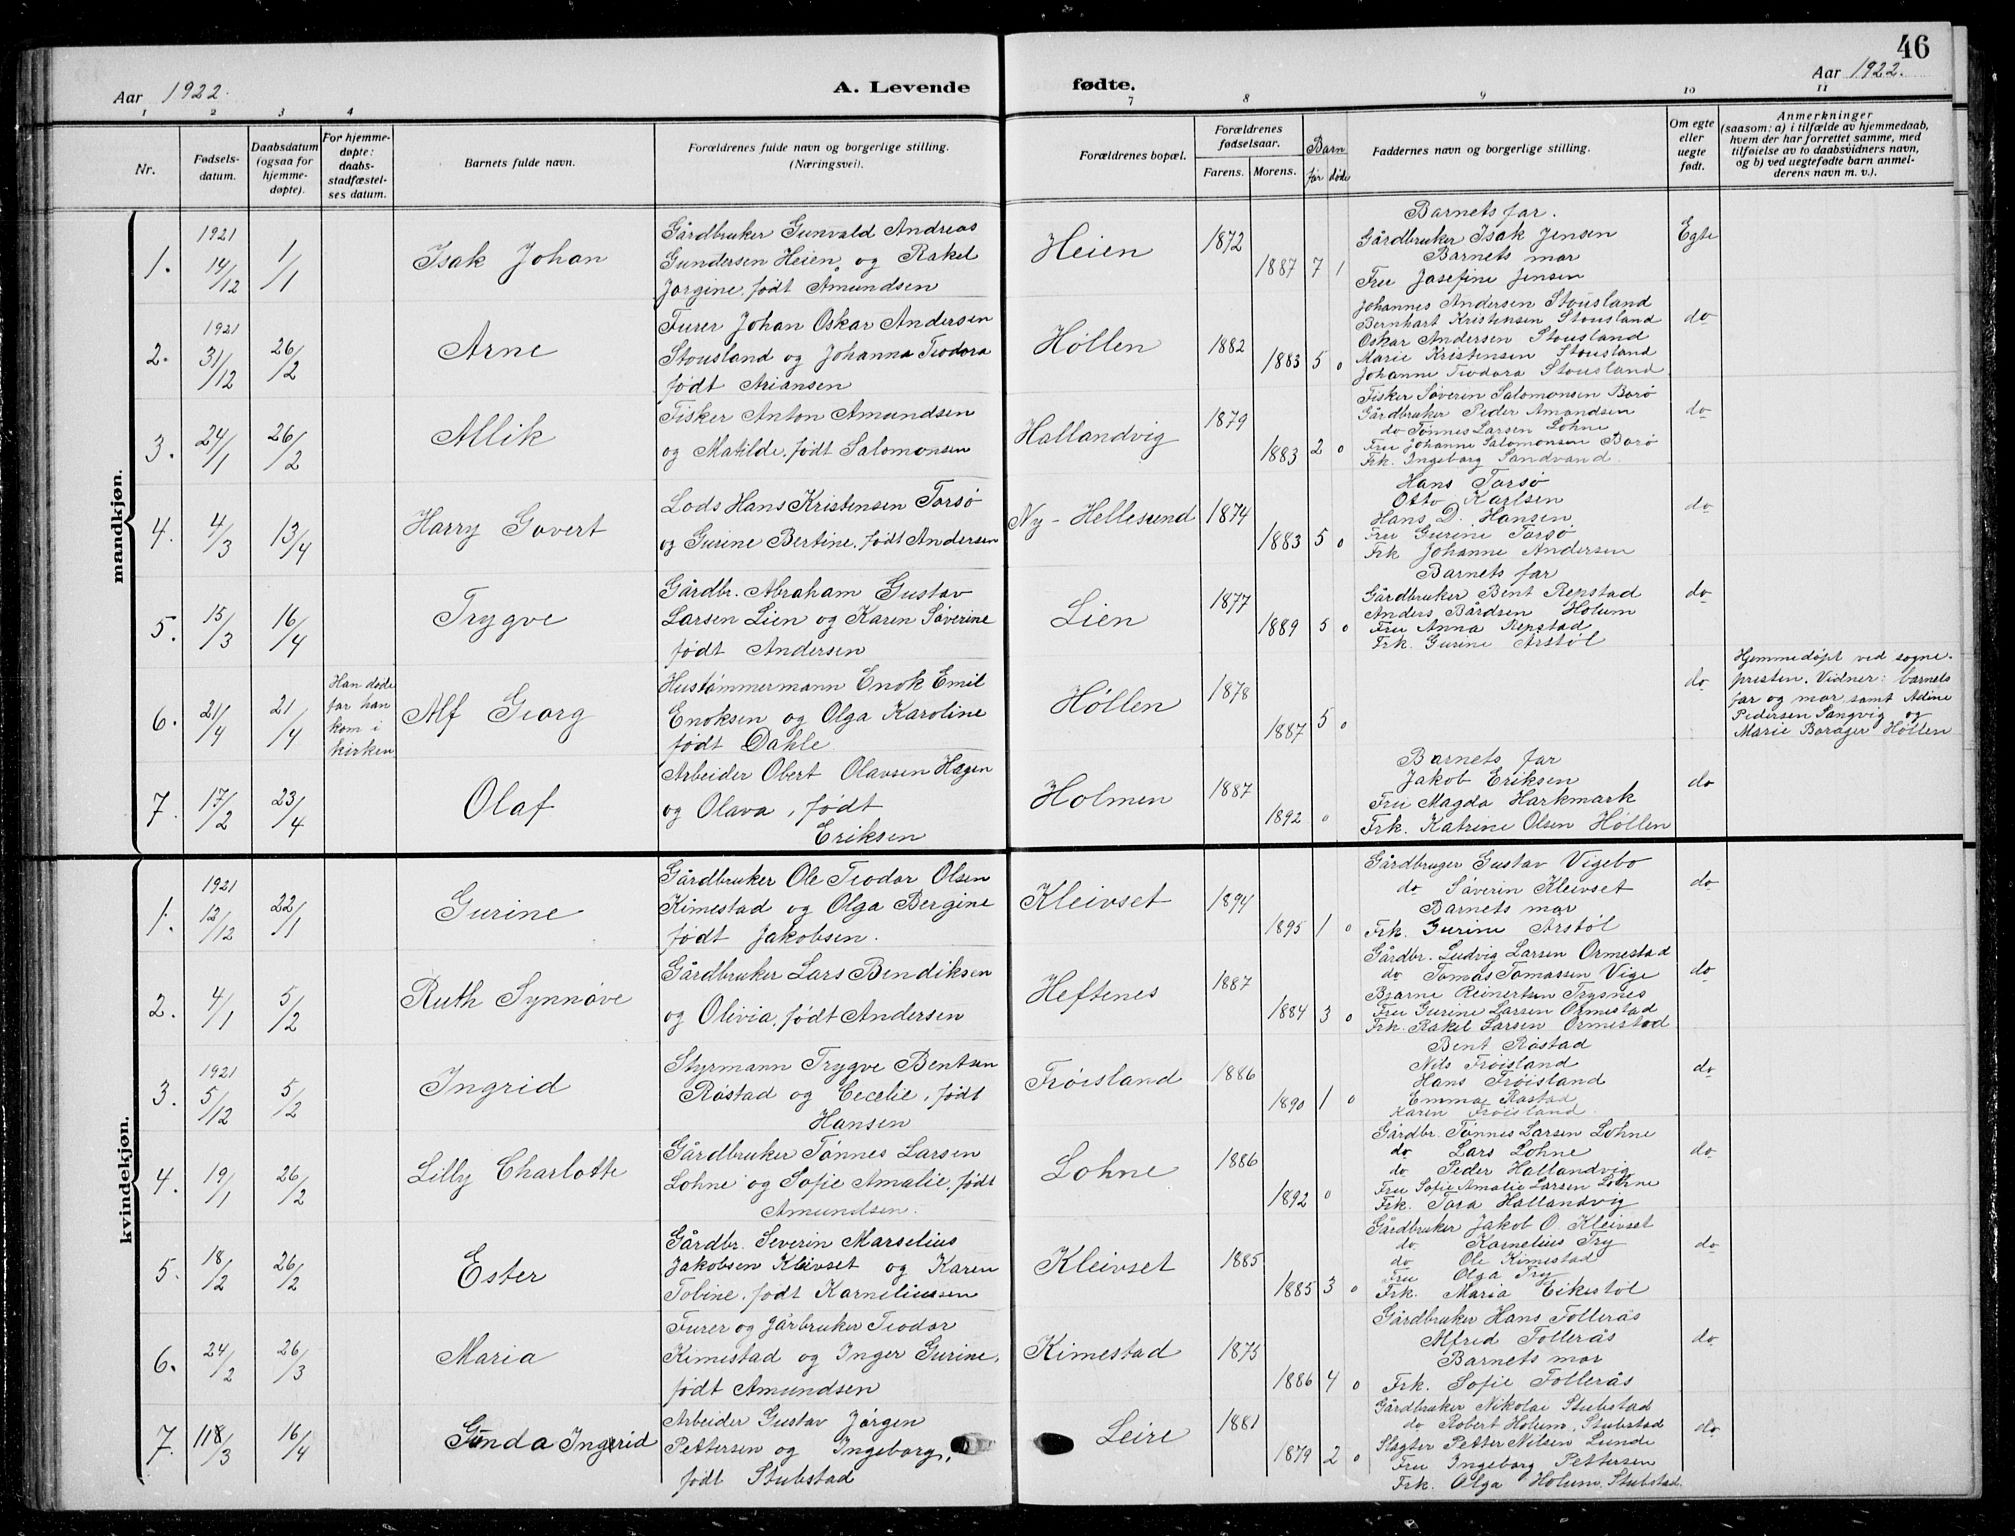 46
Aar 1922. A. Levende fødte. Aar 1922.
1 2 3 4 7 8 9 10 11
Nr. Fødsels-datum. Daabsdatum (ogsaa for hjemme-døpte). For hjemme-døpte: daabs-stadfæstel-ses datum. Barnets fulde navn. Forældrenes fulde navn og borgerlige stilling. (Næringsvei). Forældrenes bopæl. Forældrenes fødselsaar. Farens. Morens. Barn før døde Faddernes navn og borgerlige stilling. Om egte eller uegte født. Anmerkninger (saasom: a) i tilfælde av hjemmedaab, hvem der har forrettet samme, med tilføielse av to daabsvidners navn, og b) ved uegtefødte barn anmel-derens navn m. v.).
mandkjøn.
1. 1921 14/12 1/1 Isak Johan
Gårdbruker Gunvald Andreas
Gundersen Heien og Rakel
Jørgine, født Åmundsen
Heien 1872 1887 7 1
Barnets far.
Gårdbruker Isak Jensen
Barnets mor
Fru Josefine Jensen
Egte
2. 1921 31/12 26/2 Arne
Furer Johan Oskar Andersen
Stousland og Johanna Teodora
født Ariansen
Høllen 1882 1883 5 0
Johannes Andersen Stousland
Bernhart Kristensen Stousland
Oskar Andersen Stousland
Marie Kristensen Stousland
Johanne Teodora Stousland
do
3. 24/1 26/2 Alik
Fisker Anton Amundsen
og Matilde, født Salomonsen
Hallandvig 1879 1883 2 0
Fisker Søverin Salomonsen Borø
Gårdbruker Peder Amundsen
do Tønnes Larsen Lohne
Fru Johanne Salomonsen Borø
Frk. Ingeborg Sandvand.
do
4. 4/3 13/4 Harry Govert
Lods Hans Kristensen Torsø
og Gurine Bertine, født Andersen
Ny-Hellesund 1874 1883 5 0
Hans Torsø
Otto Karlsen
Hans D. Hansen
Fru Gurine Torsø
Frk Johanne Andersen
do
5. 15/3 16/4 Trygve
Gårdbr. Abraham Gustav
Larsen Lien og Karen Søverine
født Andersen
Lien 1877 1889 5 0
Barnets far
Gårdbruker Bent Repstad
Anders Bårdsen Holum
Fru Anna Repstad
Frk. Gurine Årstøl
do
6. 21/4 21/4 Han døde før han kom i kirken Alf Georg
Hustømmermann Enok Emil
Enoksen og Olga Karoline
født Dahle
Høllen 1878 1887 5 0
do
Hjemmedøpt ved sogne-
presten. Vidner: barnets
far og mor samt Adine
Pedersen Langvig og
Marie Borøger Høllen
7. 17/2 23/4 Olaf
Arbeider Obert Olavsen Hagen
og Olava, født
Eriksen
Holmen 1887 1892 0
Barnets far
Jakob Eriksen
Fru Magda Harkmark
Frk. Katrine Olsen Høllen
do
kvindekjøn.
1. 1921 12/12 22/1 Gurine
Gårdbruker Ole Teodor Olsen
Kimestad og Olga Bergine
født Jakobsen.
Kleivset 1894 1895 1 0
Gårdbruger Gustav Vigebo
do Søverin Kleivset
Barnets mor
Frk. Gurine Årstøl
do
2. 4/1 5/2 Ruth Synnøve
Gårdbruker Lars Bendiksen
og Olivia, født Andersen
Heftenes 1887 1884 3 0
Gårdbr. Ludvig Larsen Ormestad
do Tomas Tomassen Vige
Bjarne Reinertsen Trysnes
Fru Gurine Larsen Ormestad
Frk. Rakel Larsen Ormestad
do
3. 1921 5/12 5/2 Ingrid
Styrmann Trygve Bentsen
Røstad og Cecelie, født
Hansen
Frøisland 1886 1890 1 0
Bent Røstad
Nils Frøisland
Hans Frøisland
Emma Røstad
Karen Frøisland.
do
4. 19/1 26/2 Lilly Charlotte
Gårdbruker Tønnes Larsen
Lohne og Sofie Amalie, født
Amundsen.
Lohne 1886 1892 0
Gårdbr. Tønnes Larsen Lohne
do Lars Lohne
do Peder Hallandvig
Fru Sofie Amalie Larsen Lohne
Frk. Tora Hallandvig
do
5. 18/2 26/2 Ester
Gårdbr. Severin Marselius
Jakobsen Kleivset og Karen
Tobine, født Korneliussen
Kleivset 1885 1885 3 0
Gårdbruker Jakob O. Kleivset
do Kornelius Try
do Ole Kimestad
Fru Olga Try
Frk. Maria Eikestøl
do
6. 24/2 26/3 Maria
Furer og gårbruker Teodor
Kimestad og Inger Gurine,
født Amundsen
Kimestad 1875 1886 4 0
Gårdbruker Hans Tollerås
Alfred Tollerås
Barnets mor
Frk. Sofie Tollerås
do
7. 18/3 16/4 Gunda Ingrid
Arbeider Gustav Jørgen
Pettersen og Ingeborg,
født Stubstad
Leire 1881 1879 2 0
Gårdbruker Nikolai Stubstad
do Robert Holum, Stubstad
Slagter Petter Nilsen Lunde
Fru Ingeborg Pettersen
Frk. Olga Holum, Stubstad.
do